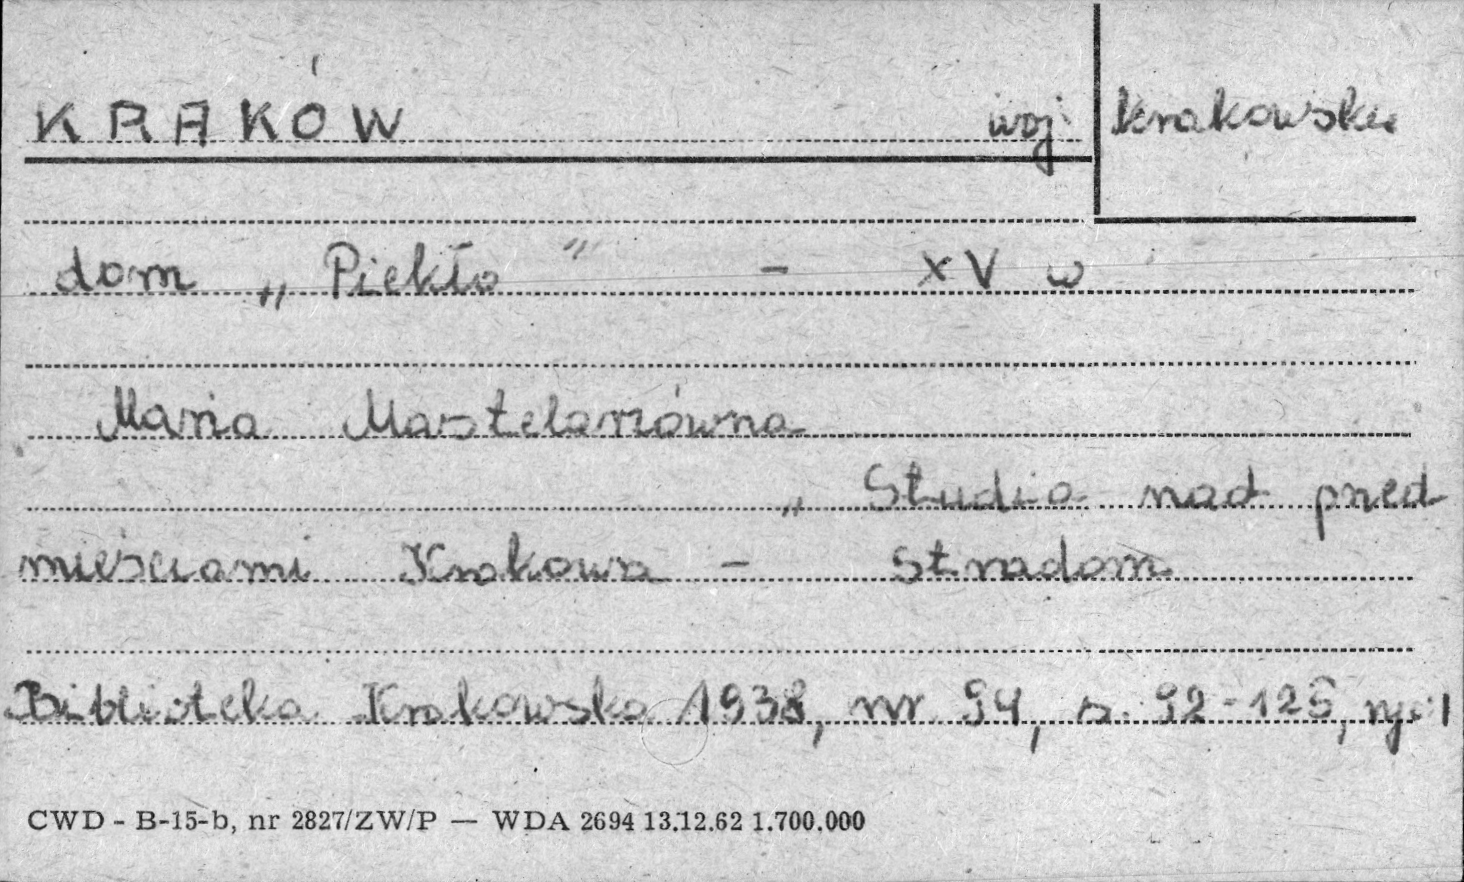 KRAKÓW woj. krakowskie
dom „Piekło" - XV w
Maria Mastelarzówna
„Studia nad przed
mieściami Krakowa - Stradom
Biblioteka Krakowska 1938, nr. 94, s. 92-125, ryc 1
CWD - B-15-b, nr 2827/ZW/P — WDA 2694 13.12.62 1.700.000